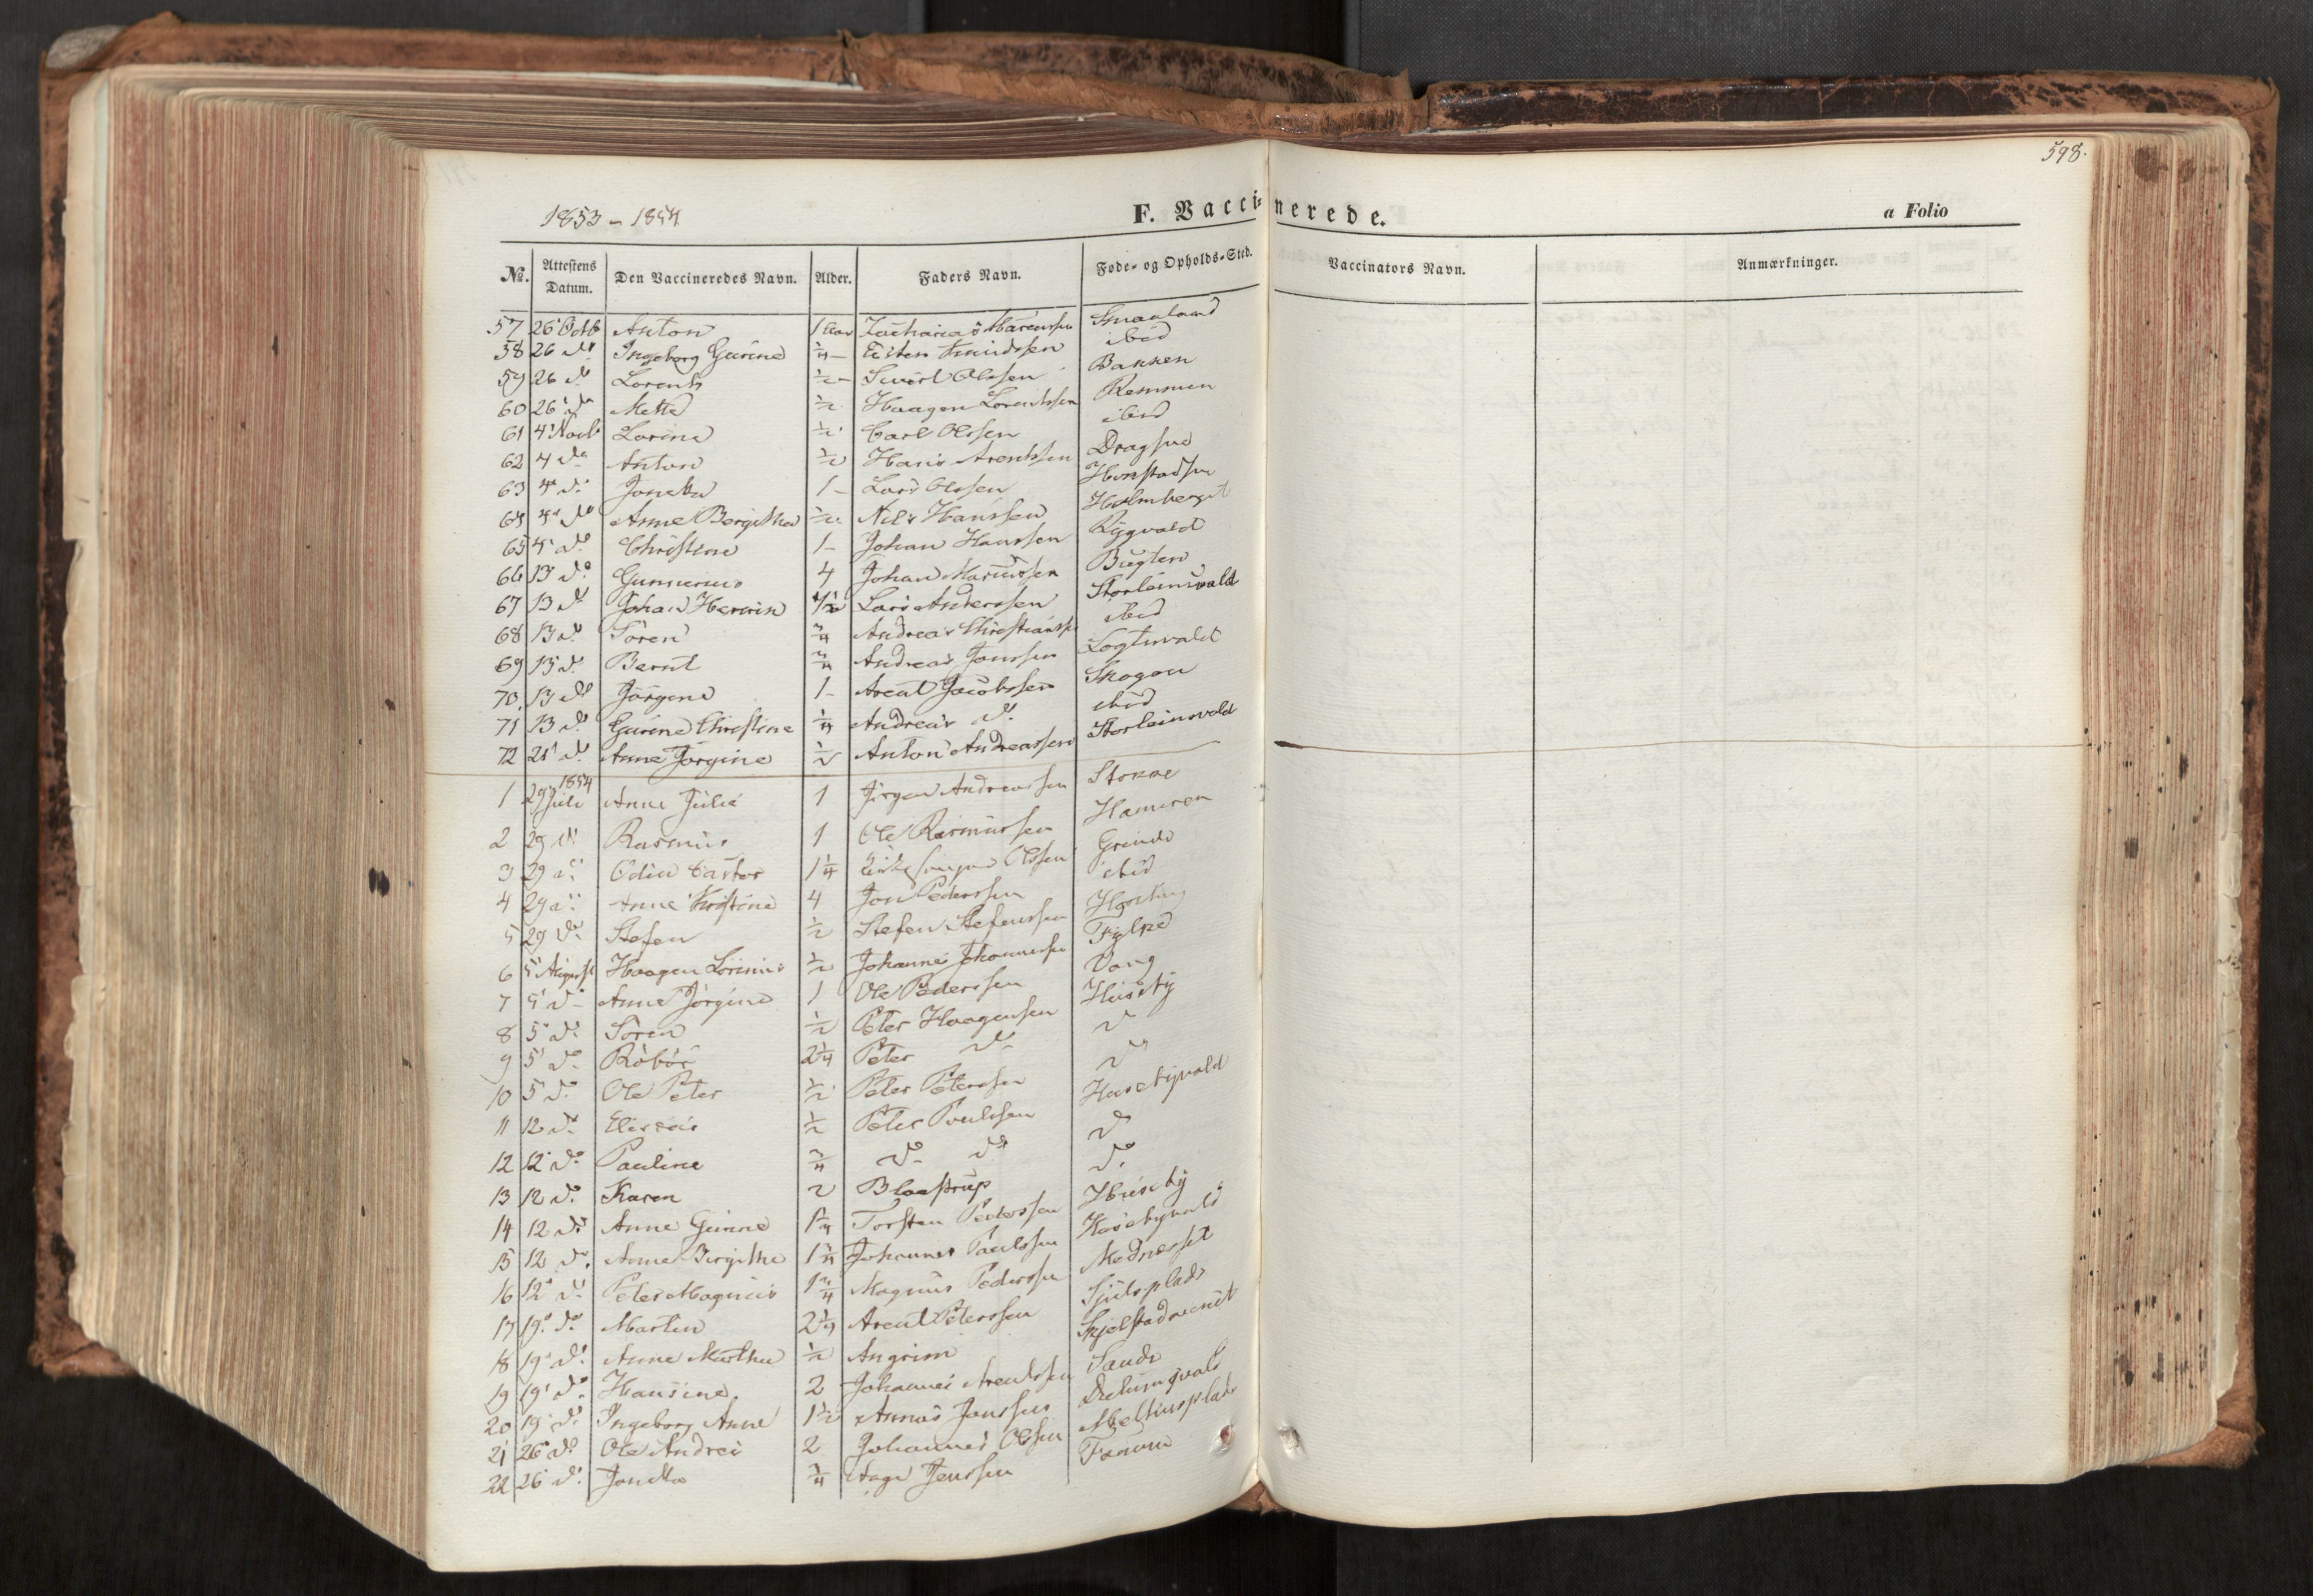 598.
1853 - 1854
F. Vaccinerede.
a Folio
No. Attestens Datum. Den Vaccineredes Navn. Alder. Faders Navn. Føde- og Opholds-Sted. Vaccinators Navn. Anmærkninger.
57 26 Octb Anton 1 Zacharias Smaaland
58 26 do Ingeborg Gurine 1/4 - Eisten Knudssen ibid
59 26 do Lorents 1/2 - Sivert Olssen Bakken
60 26 do Mette 1/2 Haagen Lorentssen Remmen
61 4 Novb Lorine 1/2 Carl Olssen ibid
62 4 do Anton 1/2 Hans Arentssen Dragsne
63 4 do Jonetta 1 - Lars Olssen
64 4 do Anne Bergithe 1/2 Nils Hanssen Holmberget
65 4 do Christine 1 - Johan Hanssen Rygvald
66 13 do Gunnerius 4 Johan Mariussen Bugten
67 13 do Johan Hermin 1/2 Lars Anderssen Storleinsvald
68 13 do Sören 3/4 Andreas Christianss ibid
69 13 do Bernt 3/4 Andreas Jonssen Logtuvald
70. 13 do Jörgine 1 - Arent Jacobssen Skogan
71 13 do Gurine Christine 1/4 Andreas do ibid
72 21 do Anne Jörgine 1/2 Anton Andreassen Storleinsvald
1854
1 29 Juli Anne Julie 1 Jörgen Andreassen Stokke
2 29 do Rasmus 1 Ole Rasmussen Hammren
3 29 do Odin Castor 1 1/4 Olssen Grande
4 29 do Anne Kristine 4 Jon Pederssen ibid
5 29 do Stefen 1/2 Stefen Stefenssen
6 5 August Haagen Lorinius 1/2 Johannes Johannessen
7 5 do Anne Jörgine 1 Ole Pederssen Vang
8 5 do Sören 1/2 Peter Haagenssen Huseby
9 5 do 2 1/4 Peter do do
10 5 do Ole Peter 1/2 Peter Peterssen do
11 12 do Eliseus 1/2 Peter Poulssen Husebyvald
12 12 do Pauline 3/4 do do do
13 12 do Karen 2 Blostrup do
14 12 do Anne Gurine 1 1/4 Torsten Pederssen Huseby
15 12 do Anne Birgithe 1 3/4 Johannes Paulssen Husebyvald
16 12 do Peter Magnus 1 3/4 Magnus Pederssen
17 19 do Martin 2 1/4 Arent Peterssen
18 19 do Anne Martha 1/2 Angrim
19 19 do Hansine. 2 Johannes Arentssen Sande
20 19 do Ingeborg Anne 1 1/2 Annas Jonssen
21 26 do Ole Andrei 2 Johannes Olssen
22 26 do Jonetta 3/4 Aage Jenssen